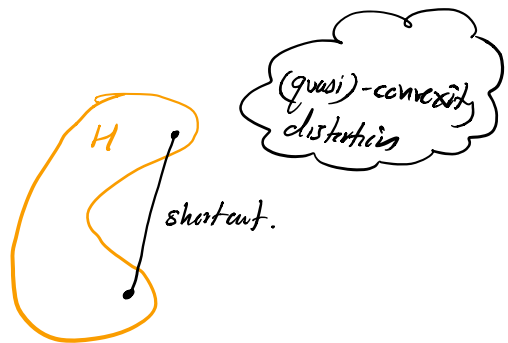 (quasi)-convexity
distortion
H
shortcut.